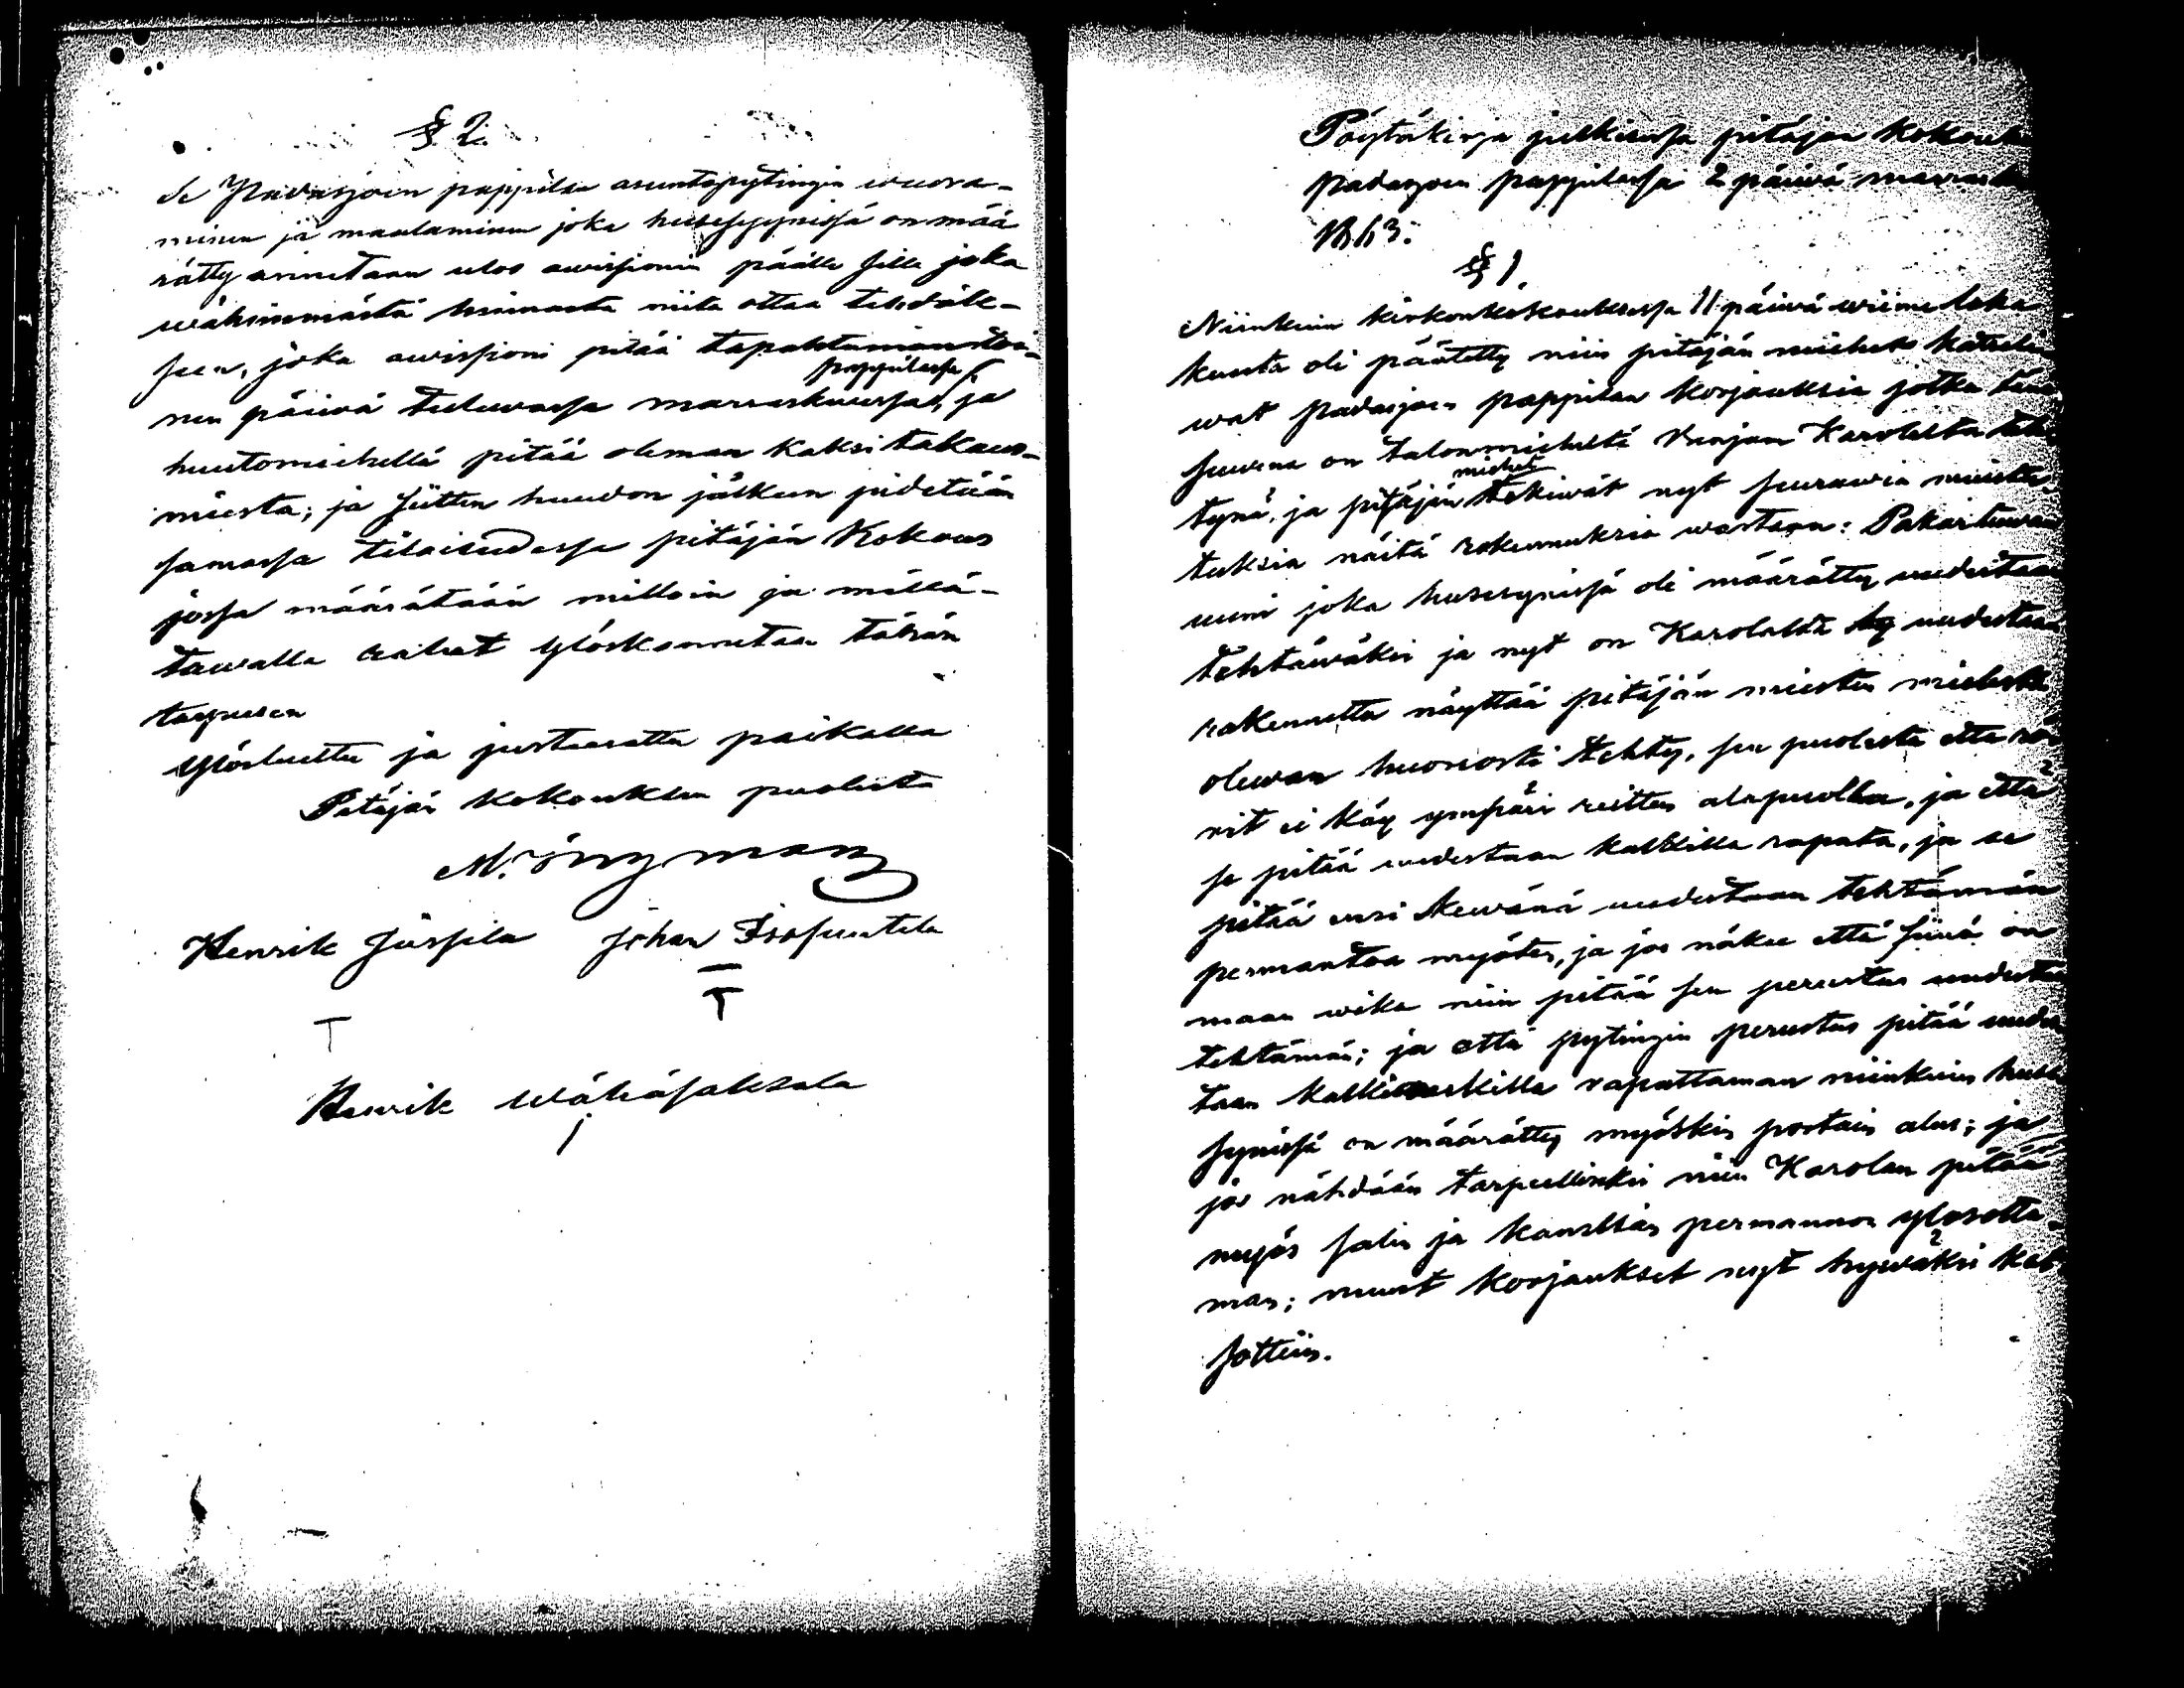 §. 2.
se Padasjoen pappilan asuntopytingin wuora-
minen ja maalaminen joka husesyynissä on mää
rätty annetaan ulos auxionin päälle sille joka
wähimmästä hinnasta niitä ottaa tehdäk-
seen, joka auxioni pitää tapahtuman toi-
nen päiwä tulewassa marraskuussa pappilassa, ja
huutomiehellä pitää oleman kaksi takaus-
miestä; ja siitten huudon jälkeen pidetään
samassa tilaisuudessa pitäjän kokous
jossa määrätään milloin ja millä-
tawalla rahat ylöskannetaan tähän
tarpeesen
Ylösluettu ja justeerattu paikalla
Pitäjän kokouksen puolesta
M. Öhrman
Henrik Jussila Johan Isosuutela
T T
Henrik Wähäjaksala
Pöytäkirja julkisessa pitäjän kokouk
padasjoen pappilassa 2 päiwä marrask
1863.
§ 1.
Niinkuin kirkonkokouksessa 11 päiwä wiime loka
kuuta oli päätetty niin pitäjän miehet katseli
wat padasjoen pappilan korjauksia jotka tänä
suwena on talonmieheltä Karolalta teh
tynä, ja pitäjän miehet tekiwät nyt seurawia muistu
tuksia näitä rakennuksia wastaan: Pakarituwan
uuni joka husesynissä oli määrätty uudestaan
tehtäwäksi ja nyt on Karolalta uudestaan
rakennettu näyttää pitäjän miesten mielestä
olewan huonosti tehty, sen puolesta että rö
rit ei käy ympäri reittin alapuolla, ja että
se pitää uudestaan kalkilla rapata, ja se
pitää ensi kewänä uudestaan tehtämän
permantoa myöten, ja jos näkee että siinä on
maan wika niin pitää sen perustus uudesta
tehtämän; ja että pytingin perustus pitää uudes
taan kalkilla rapattaman niinkuin huse
synissä on määrätty myöskin portain alus; ja
jos nähdään tarpeelliseksi niin Karolan pitää
myös salin ja kanslian permannon ylösotta-
man; muut korjaukset nyt hywäksi kat
sottiin.